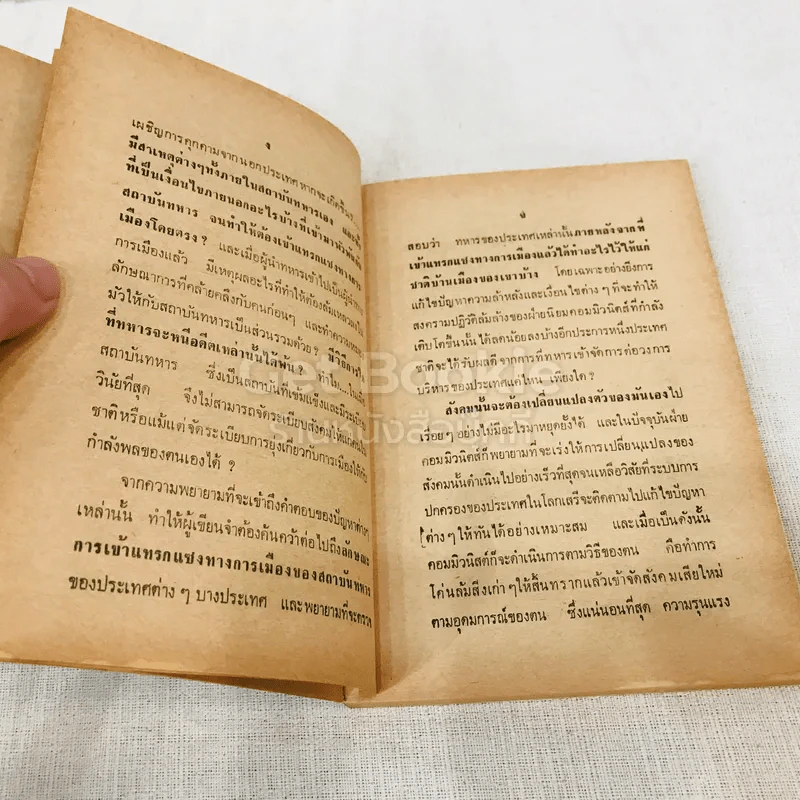 ง
เผชิญการคุกคามจากนอกประเทศ หากจะเกิดขึ้น
มีสาเหตุต่างๆทั้งภายในสถาบันทหารเอง
ที่เป็นเงื่อนไขภายนอกอะไรบ้างที่เข้ามาพัวพันกับ
สถาบันทหาร จนทำให้ต้องเข้าแทรกแซงทางการ
เมืองโดยตรง? และเมื่อผู้นำทหารเข้าไปเป็นผู้นำทาง
การเมืองแล้ว มีเหตุผลอะไรที่ทำให้ต้องล้มเหลวลงใน
ลักษณาการที่คล้ายคลึงกับคนก่อนๆ และทำความหมอง
มัวให้กับสถาบันทหารเป็นส่วนรวมด้วย? มีวิธีการใด
ที่ทหารจะหนีอดีตเหล่านั้นได้พ้น? ทำไม....ในเมื่อ
สถาบันทหาร ซึ่งเป็นสถาบันที่เข้มแข็งและมีระเบียบ
วินัยที่สุด จึงไม่สามารถจัดระเบียบสังคมให้แก่คนใน
ชาติหรือแม้แต่จัดระเบียบการยุ่งเกี่ยวกับการเมืองให้กับ
กำลังพลของตนเองได้ ?
จากความพยายามที่จะเข้าถึงคำตอบของปัญหาต่างๆ
เหล่านั้น ทำให้ผู้เขียนจำต้องค้นคว้าต่อไปถึงลักษณะ
การเข้าแทรกแซงทางการเมืองของสถาบันทหาร
ของประเทศต่าง ๆ บางประเทศ และพยายามที่จะตรวจ
จ
สอบว่า ทหารของประเทศเหล่านั้นภายหลังจากที่
เข้าแทรกแซงทางการเมืองแล้วได้ทำอะไรไว้ให้แก่
ชาติบ้านเมืองของเขาบ้าง โดยเฉพาะอย่างยิ่งการ
แก้ไขปัญหาความล้าหลังและเงื่อนไขต่าง ๆ ที่จะทำให้
สงครามปฏิวัติล้มล้างของฝ่ายนิยมคอมมิวนิสต์ที่กำลัง
เติบโตขึ้นนั้น ได้ลดน้อยลงบ้างอีกประการหนึ่งประเทศ
ชาติจะได้รับผลดีจากการที่ทหารเข้าจัดการต่อวงการ
บริหารของประเทศแค่ไหน เพียงใด ?
สังคมนั้นจะต้องเปลี่ยนแปลงตัวของมันเองไป
เรื่อยๆ อย่างไม่มีอะไรมาหยุดยั้งได้ และในปัจจุบันฝ่าย
คอมมิวนิสต์ก็พยายามที่จะเร่งให้การเปลี่ยนแปลงของ
สังคมนั้นดำเนินไปอย่างเร็วที่สุดจนเหลือวิสัยที่ระบบการ
ปกครองของประเทศในโลกเสรีจะติดตามไปแก้ไขปัญหา
ต่างๆ ให้ทันได้อย่างเหมาะสม และเมื่อเป็นดังนั้น
คอมมิวนิสต์ก็จะดำเนินการตามวิธีของตน คือทำการ
โค่นล้มสิ่งเก่าๆให้สิ้นทรากแล้วเข้าจัดสังคมเสียใหม่
ตามอุดมการณ์ของตน ซึ่งแน่นอนที่สุด ความรุนแรง